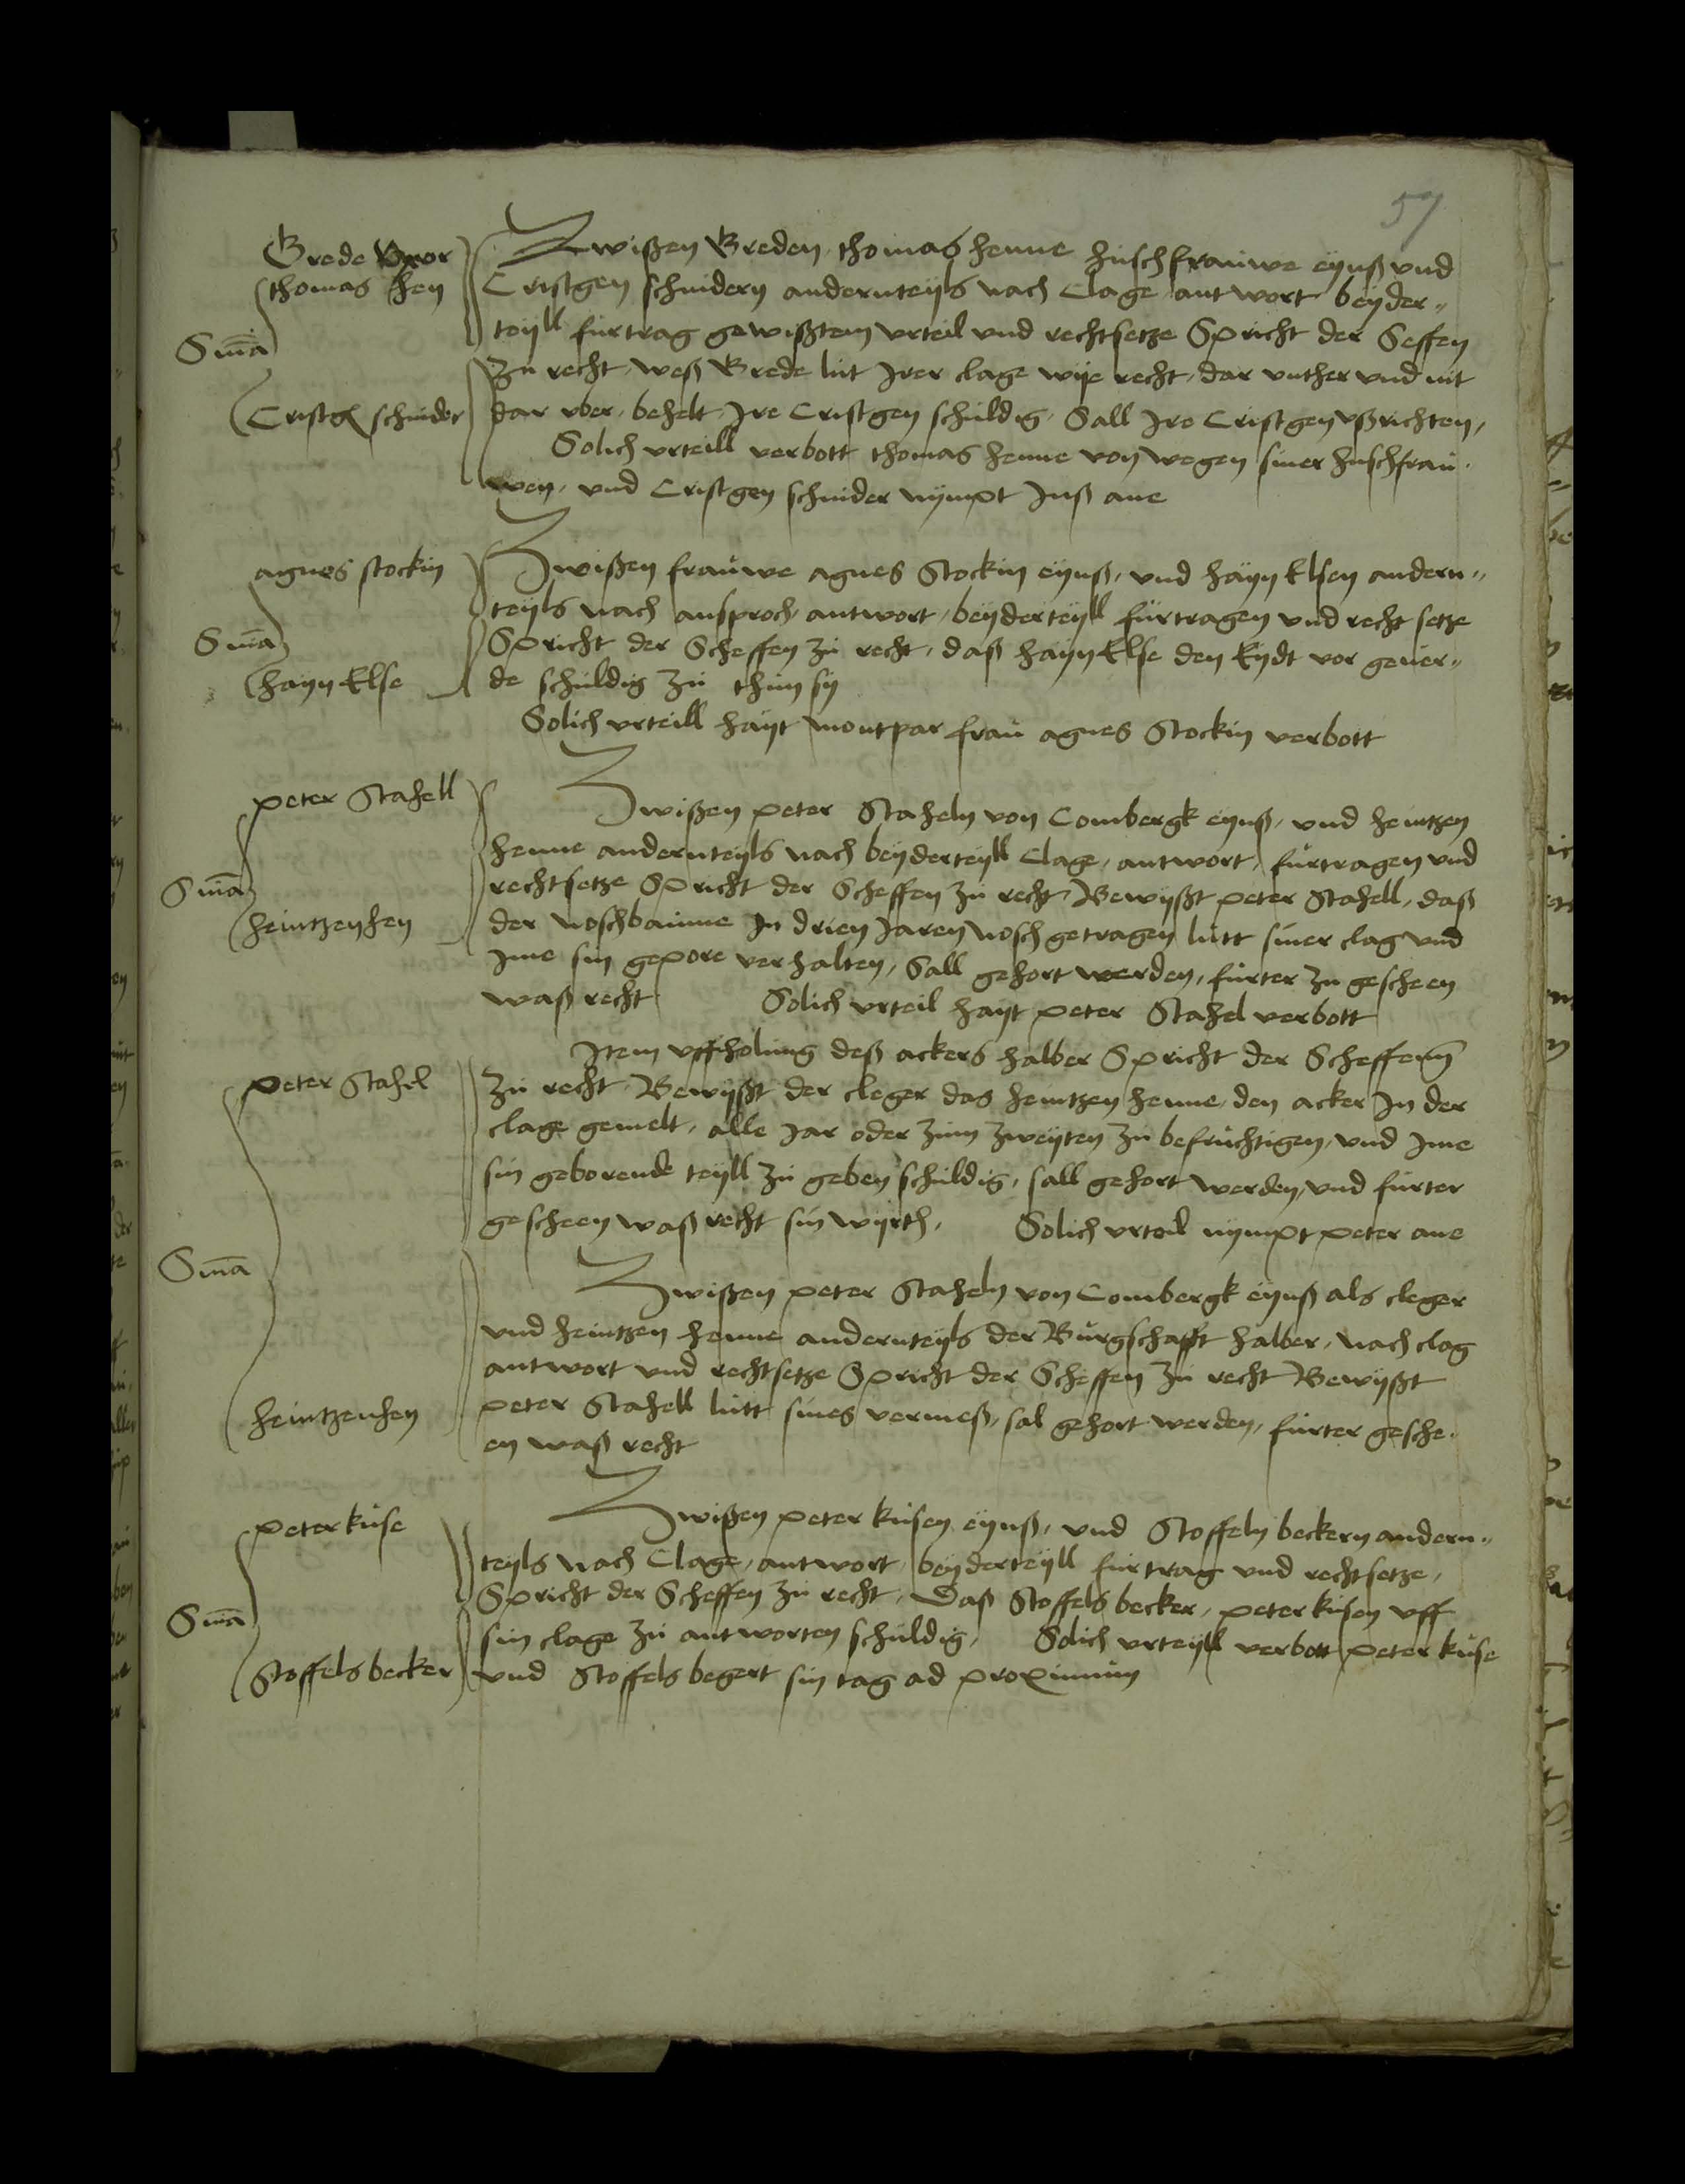 57
Grede Uxor
thomas hen
Sma
Cristgen schnider
Zwißen Greden thomas henne hußfrauwe eynß und
Cristgen schnidern andernteyls nach Clage antwort beyder„
teyll furtrag gewißtem urteil und rechtsetze Spricht der Scffen
zu recht, weß Grede lut Irer clage wye recht, dar unther und nit
dar uber, behelt, Ire Cristgen schuldig, Sall Ire Cristgen ußrichten,
Solich urteill verbott thomas henne von wegen siner hußfrau„
wen, und Cristgen schnider nympt Inß ane
agnes stockin
Sma
hayn Else
Zwißen frauwe agnes Stockin eynß, und hayn Elsen andern„
teyls nach ansproch, antwort, beyderteyll furtragen und recht setze
Spricht der Scheffen zu recht, daß hayn Else den Eydt vor gever„
de schuldig zu thun sy
Solich urteill hayt montpar frau agnes Stockin verbott
peter Stahell
Sma
heintzenhen
Zwißen peter Staheln von Combergk eynß, und heintzen
henne andernteyls nach beyderteyll Clage, antwort, furtragen und
rechtsetze Spricht der Scheffen zu recht Bewyßt peter Stahell, daß
der noßbaume In drien Jaren noß getragen lutt siner clag und
Ime sin gepore verhalten, Sall gehort werden, furter zu gescheen
waß recht Solich urteil hayt peter Stahel verbott
peter Stahel
Item uffholung deß ackers halber Spricht der Scheffenn
zu recht, Bewyßt der cleger das heintzen henne, den acker In der
clage gemelt, alle Jar oder zum zweyten zu befruchtigen, und Ime
sin geborende teyll zu geben schuldig, sall gehort werden, und furter
gescheen waß recht sin wyrth, Solich urteil nympt peter ane
Sma
heintzenhen
Zwißen peter Staheln von Combergk eynß als cleger
und heintzen henne andernteyls der Burgschafft halber, nach clag
antwort und rechtsetze Spricht der Scheffen zu recht Bewyßt
peter Stahell lutt sines vermeß, sal gehort werden, furter gesche„
en waß recht
peter kuse
Sma
Stoffels becker
Zwißen peter kusen eynß, und Stoffeln beckern andern„
teyls nach Clage, antwort, beyderteyll furtrag und rechtsetze,
Spricht der Scheffen zu recht, Daß Stoffels becker, peter kusen uff
sin clage zu antworten schuldig, Solich urteyll verbott peter kuse
und Stoffels begert sin tag ad proximum